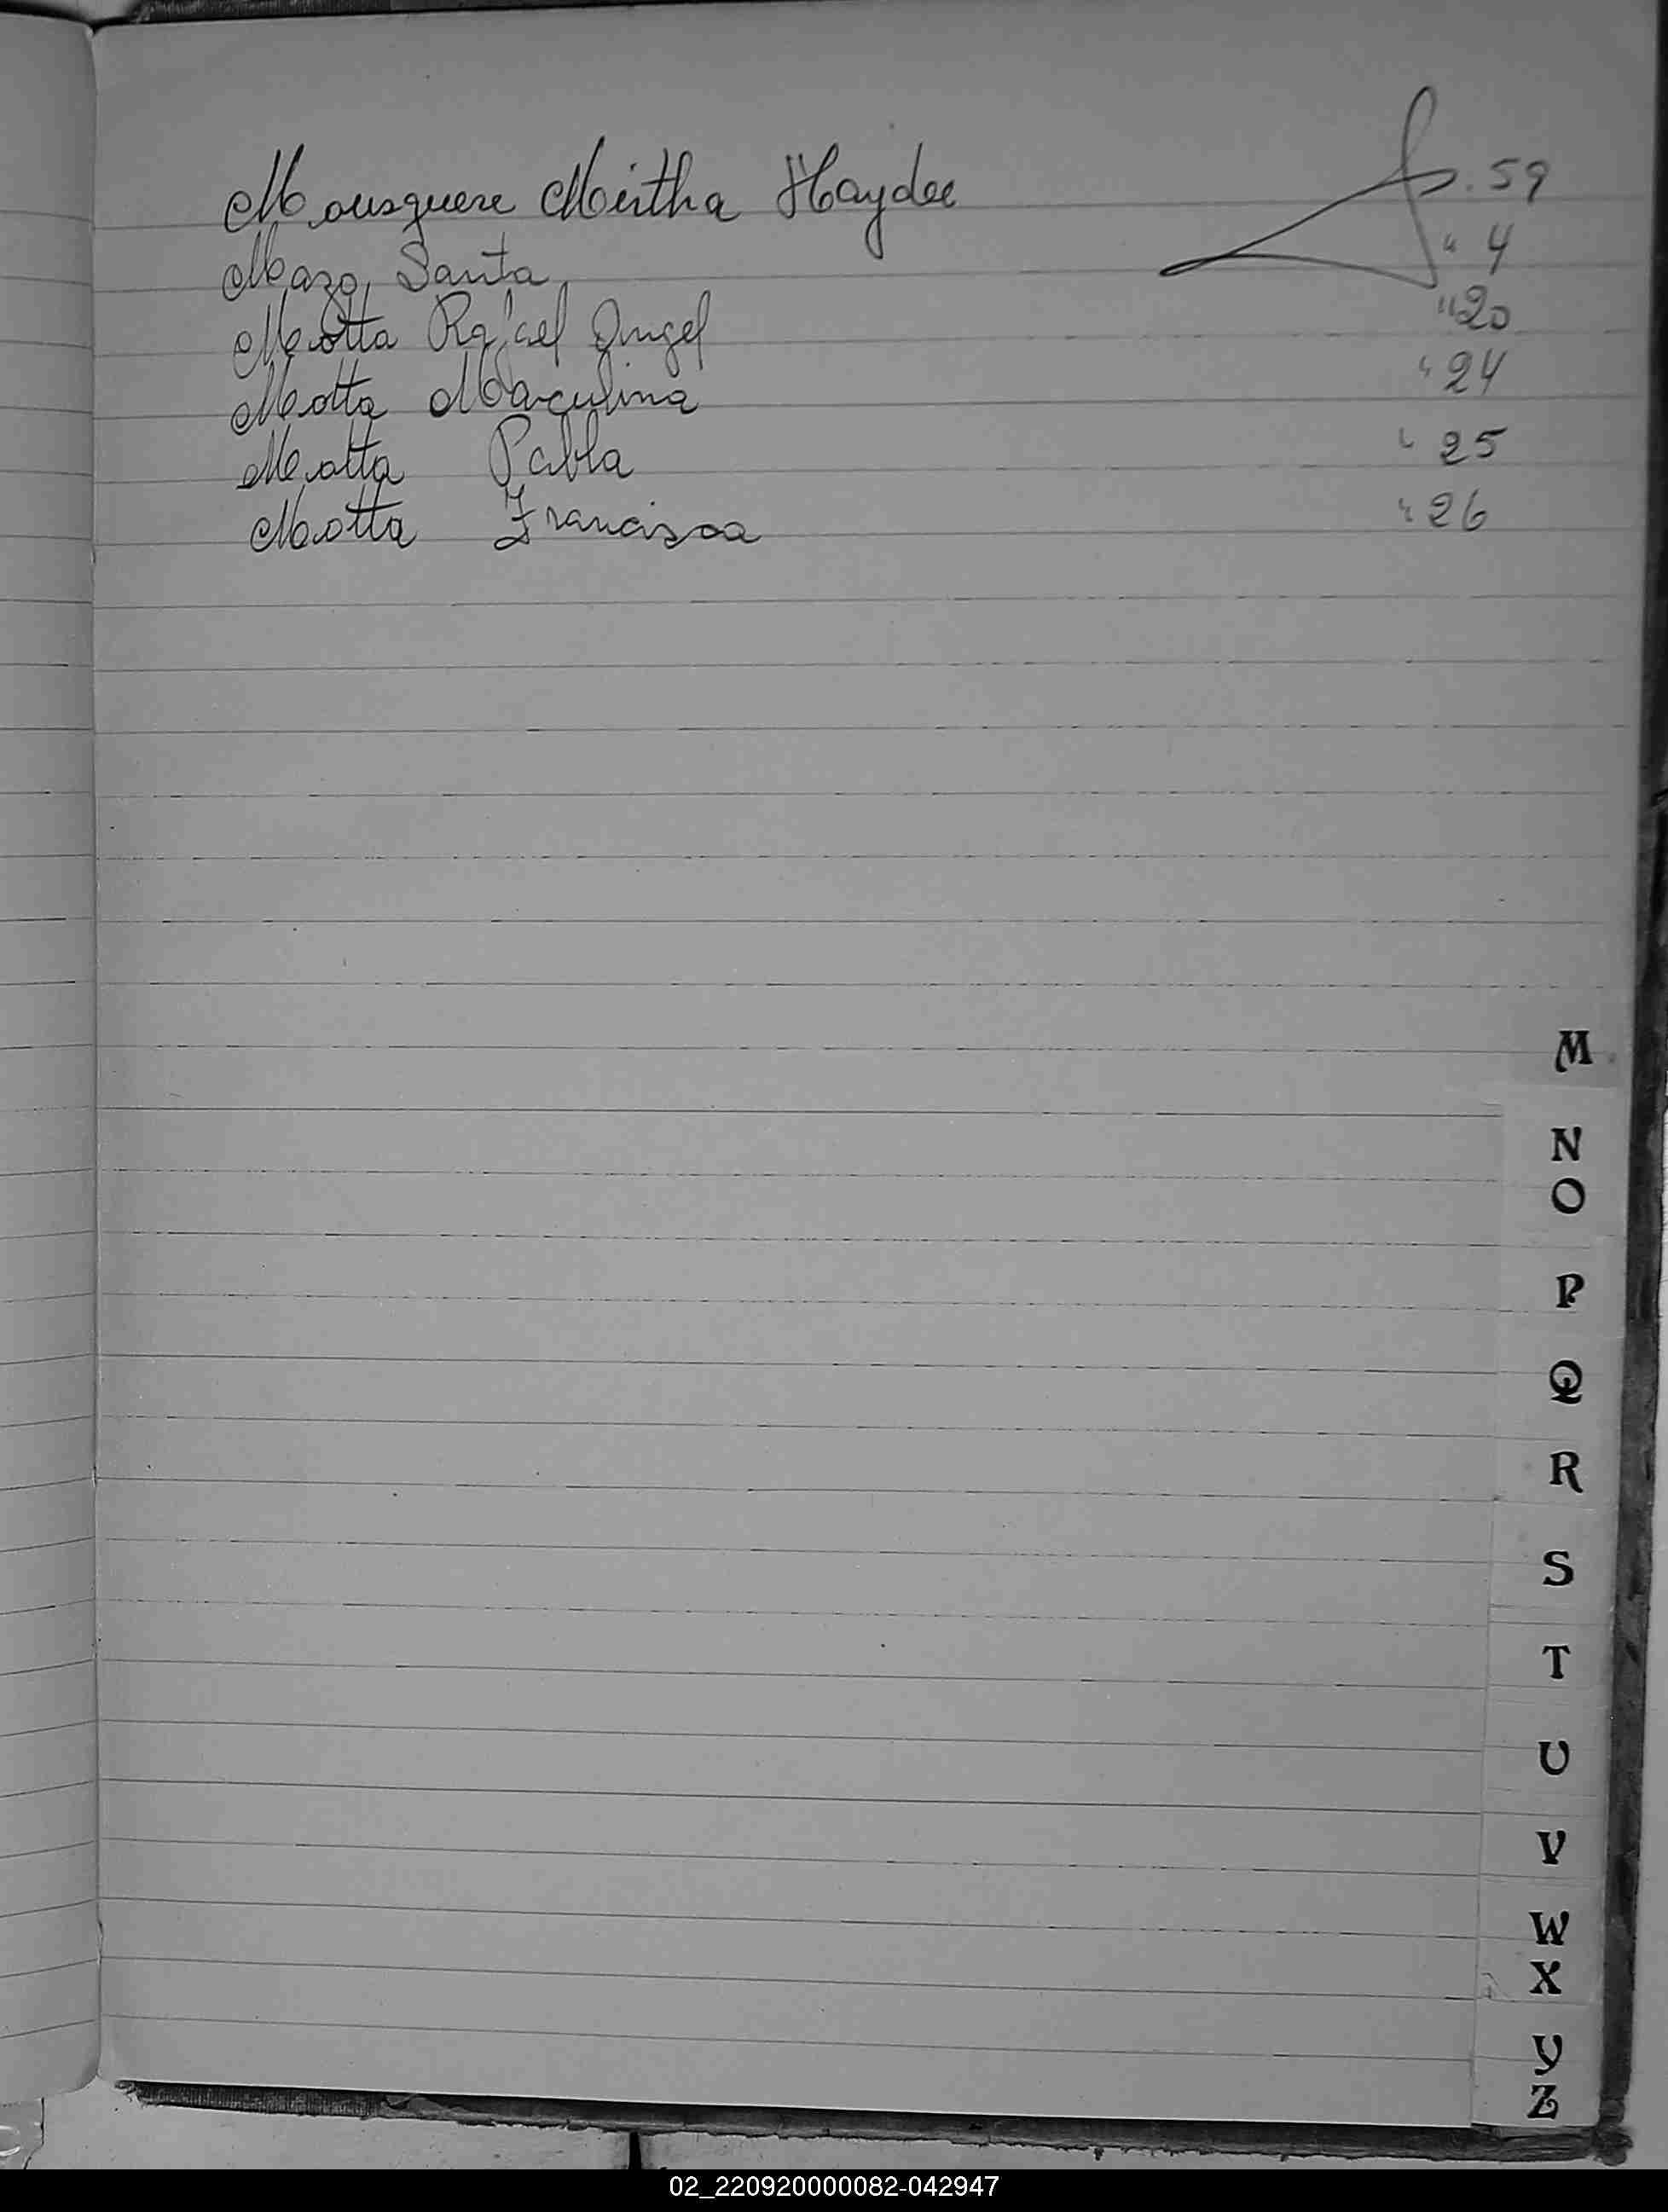 Mousquere Mirtha Haydee f. 59
Mazo, Santa " 4
Motta Rafael Angel " 20
Motta Marculina " 24
Motta Pabla " 25
Motta Francisca " 26
M
N
O
P
Q
R
S
T
U
V
W
X
Y
Z
02_220920000082-042947